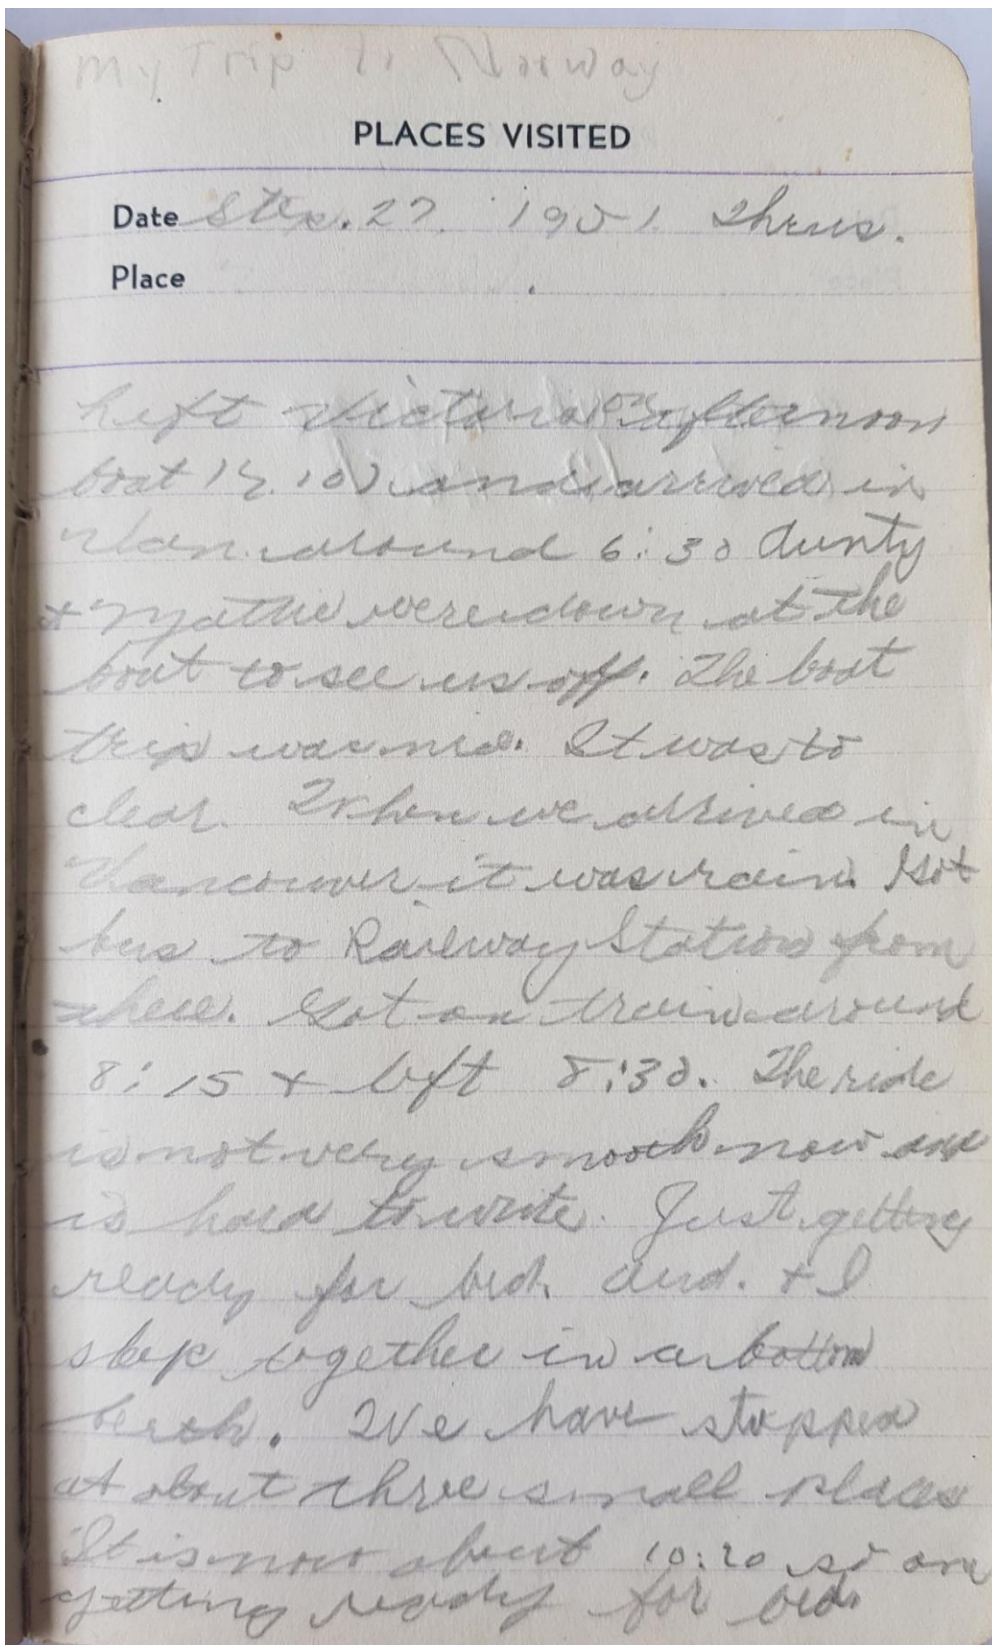 My Trip to Norway
PLACES VISITED
Date Sep. 27. 1951. Thrus.
Place
Left Victoria on afternoon
boat and arrived in
Van. around 6:30 Aunty
& were down at the
boat to see us off. The boat
trip was nice. It was to
clear. When we arrived in
Vancouver it was rain. Got
bus to Railway Station from
there. Got on train around
8:15 & left 8:30. The ride
is not very smooth now and
is hard to write. Just getting
ready for bed. Aud. & I
sleep together in a bottom
berth. We have stopped
at about three small places
It is now about 10:20 so am
getting ready for bed.